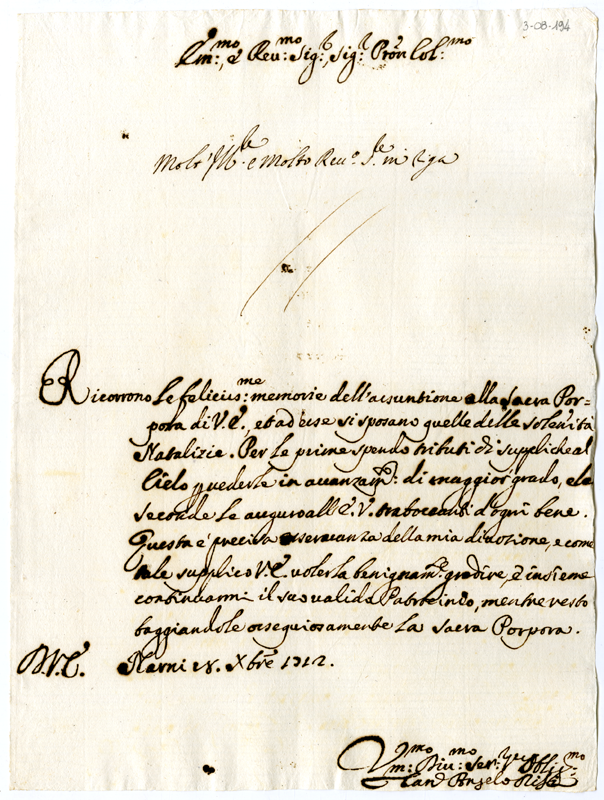 3-08-194
Em:mo, e Reu:mo Sig:r, Sig:r Pron Col:mo
Molt' Ill.e e Molto Reu.o S.re in
Ricorrono le felicis:me memorie dell'assuntione alla Sacra Por=
pora di V.E., et ad esse si sposano quelle delle solennità
Natalizie. Per le prime spendo tributi di suppliche al
Cielo p vederle in auanzam.to: di maggior grado, e le
seconde le auguro all'E.V. traboccanti d'ogni bene.
Questa è precisa osseruanza della mia diuozione, e come
tale supplico V.E. volerla benignam.te gradire, et insieme
continuarmi il suo valido Patrocinio, mentre resto
baggiandole ossequiosamente la Sacra Porpora.
D.V.E. Narni 18. Xbre 1712.
Um:mo Diu:mo Ser:re Oblig:mo
Can.o Angelo